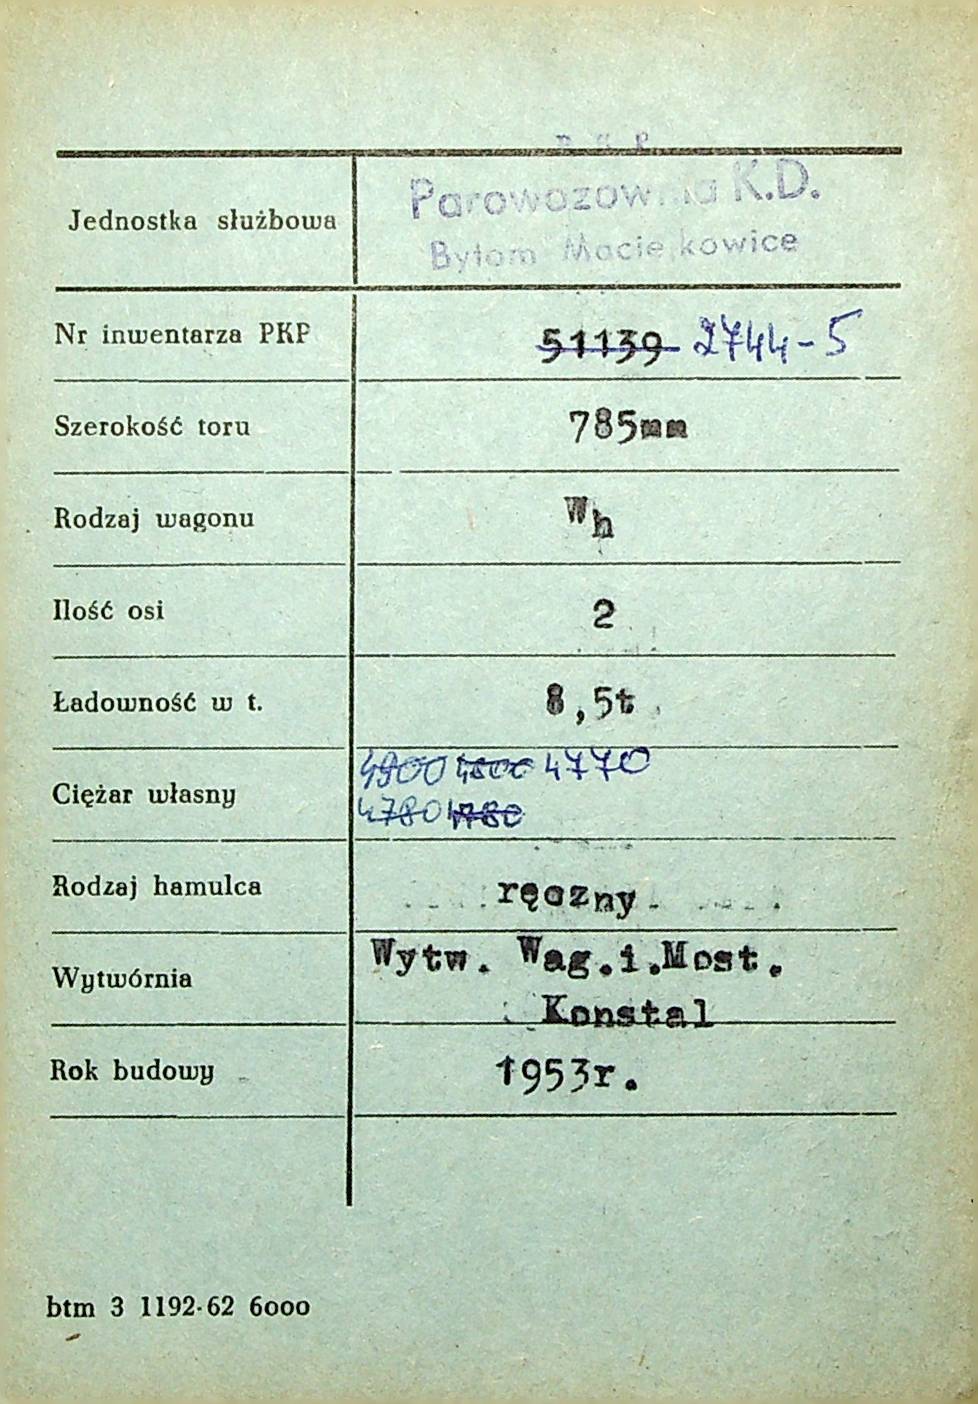 P K P
Parowozownia K.D.
Bytom Maciejkowice
Jednostka służbowa
Nr inwentarza PKP 51139 2744-5
Szerokość toru 785mm
Rodzaj wagonu Wh
Ilość osi 2
Ładowność w t. 8,5t
4900 4800 4770
Ciężar własny
4780 4780
Rodzaj hamulca ręczny
Wytw. Wag.i.Most.
Wytwórnia
Konstal
Rok budowy 1953r.
btm 3 1192-62 6000